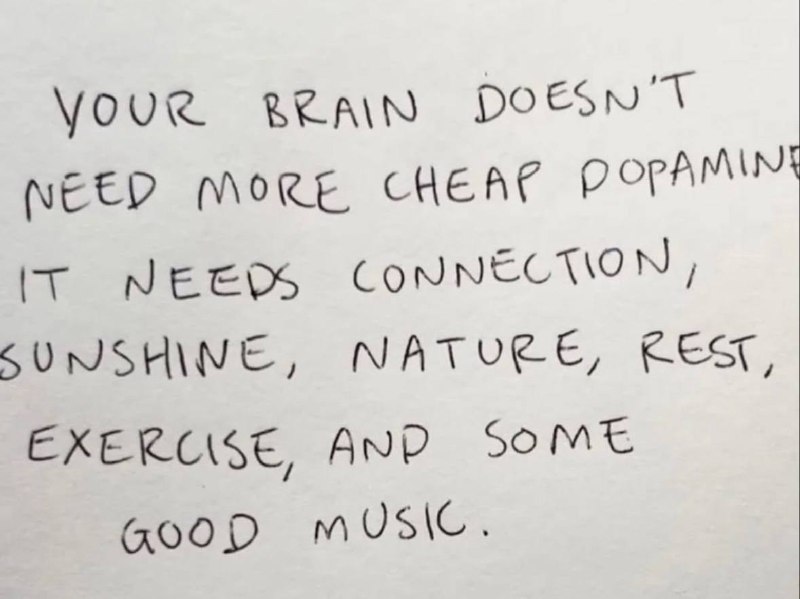 YOUR BRAIN DOESN'T
NEED MORE CHEAP DOPAMINE
IT NEEDS CONNECTION,
SUNSHINE, NATURE, REST,
EXERCISE, AND SOME
GOOD MUSIC.